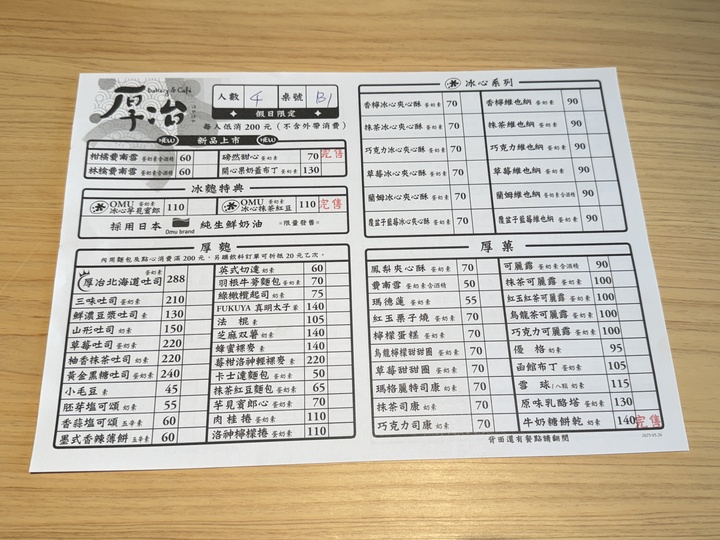 Bakery & Cafe
厚冶
人數 4 桌號 B1
假日限定
每人低消 200 元（不含外帶消費）
NEW 新品上市 NEW
柑橘費南雪 蛋奶素含酒精 60
磅然甜心 蛋奶素 70 完售
林檎費南雪 蛋奶素含酒精 60
開心果奶蓋布丁 蛋奶素 130
冰麵特典
OMU 蛋奶素 冰心芋見蜜郎 110
OMU 蛋奶素 冰心抹茶紅豆 110 完售
採用日本 Omu brand 純生鮮奶油 ※限量發售※
厚麵
內用麵包及點心消費滿 200 元，另購飲料訂單可折抵 20 元乙次。
厚冶北海道吐司 蛋奶素 288
三味吐司 蛋奶素 210
鮮濃豆漿吐司 素 130
山形吐司 奶素 150
草莓吐司 蛋奶素 220
柚香抹茶吐司 奶素 220
黃金黑糖吐司 蛋奶素 240
小毛豆 素 45
胚芽塩可頌 奶素 55
香蒜塩可頌 五辛素 60
墨式香辣薄餅 五辛素 60
英式切達 奶素 60
羽根牛蒡麵包 蛋奶素 70
綠橄欖起司 奶素 75
FUKUYA 真明太子 葷 140
法棍 素 105
芝麻双薯 奶素 140
蜂蜜裸麥 素 140
莓柑洛神輕裸麥 素 220
卡士達麵包 蛋奶素 50
抹茶紅豆麵包 蛋奶素 65
芋見蜜郎心 蛋奶素 70
肉桂捲 蛋奶素 110
洛神檸檬捲 蛋奶素 110
冰心系列
香檸冰心夾心酥 蛋奶素 70
抹茶冰心夾心酥 蛋奶素 70
巧克力冰心夾心酥 蛋奶素 70
草莓冰心夾心酥 蛋奶素 70
蘭姆冰心夾心酥 蛋奶素 70
覆盆子藍莓冰心夾心酥 蛋奶素 70
香檸維也納 蛋奶素 90
抹茶維也納 蛋奶素 90
巧克力維也納 蛋奶素 90
草莓維也納 蛋奶素 90
蘭姆維也納 蛋奶素含酒精 90
覆盆子藍莓維也納 蛋奶素 90
厚菓
鳳梨夾心酥 蛋奶素 70
費南雪 蛋奶素含酒精 50
瑪德蓮 蛋奶素 55
紅玉栗子燒 蛋奶素 70
檸檬蛋糕 蛋奶素 70
烏龍檸檬甜甜圈 蛋奶素 70
草莓甜甜圈 蛋奶素 70
瑪格麗特司康 奶素 70
抹茶司康 奶素 70
巧克力司康 奶素 70
可麗露 蛋奶素含酒精 90
抹茶可麗露 蛋奶素 100
紅玉紅茶可麗露 蛋奶素 100
烏龍茶可麗露 蛋奶素 100
巧克力可麗露 蛋奶素 100
優格 奶素 95
函館布丁 蛋奶素 105
雪球/八顆 奶素 115
原味乳酪塔 蛋奶素 130
牛奶糖餅乾 奶素 140 完售
背面還有餐點請翻閱